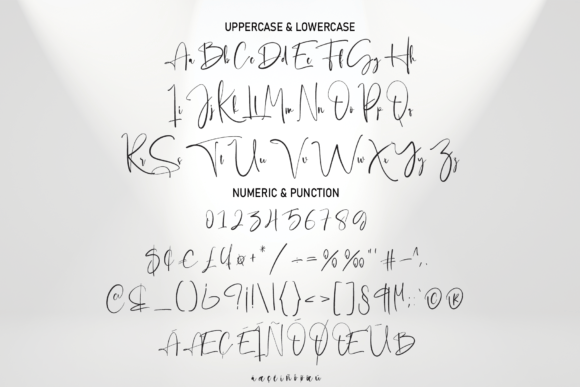 UPPERCASE & LOWERCASE
Aa Bb Cc Dd Ee Ff Gg Hh
Ii Jj Kk Ll Mm Nn Oo Pp Qq
Rr Ss Tt Uu Vv Ww Xx Yy Zz
NUMERIC & PUNCTION
0123456789
+* / ÷=%‰"'#—^,.
@&_()¿?¡!|\|{}<>[]§¶
ÆÇÉ ÑÓØŒÜß